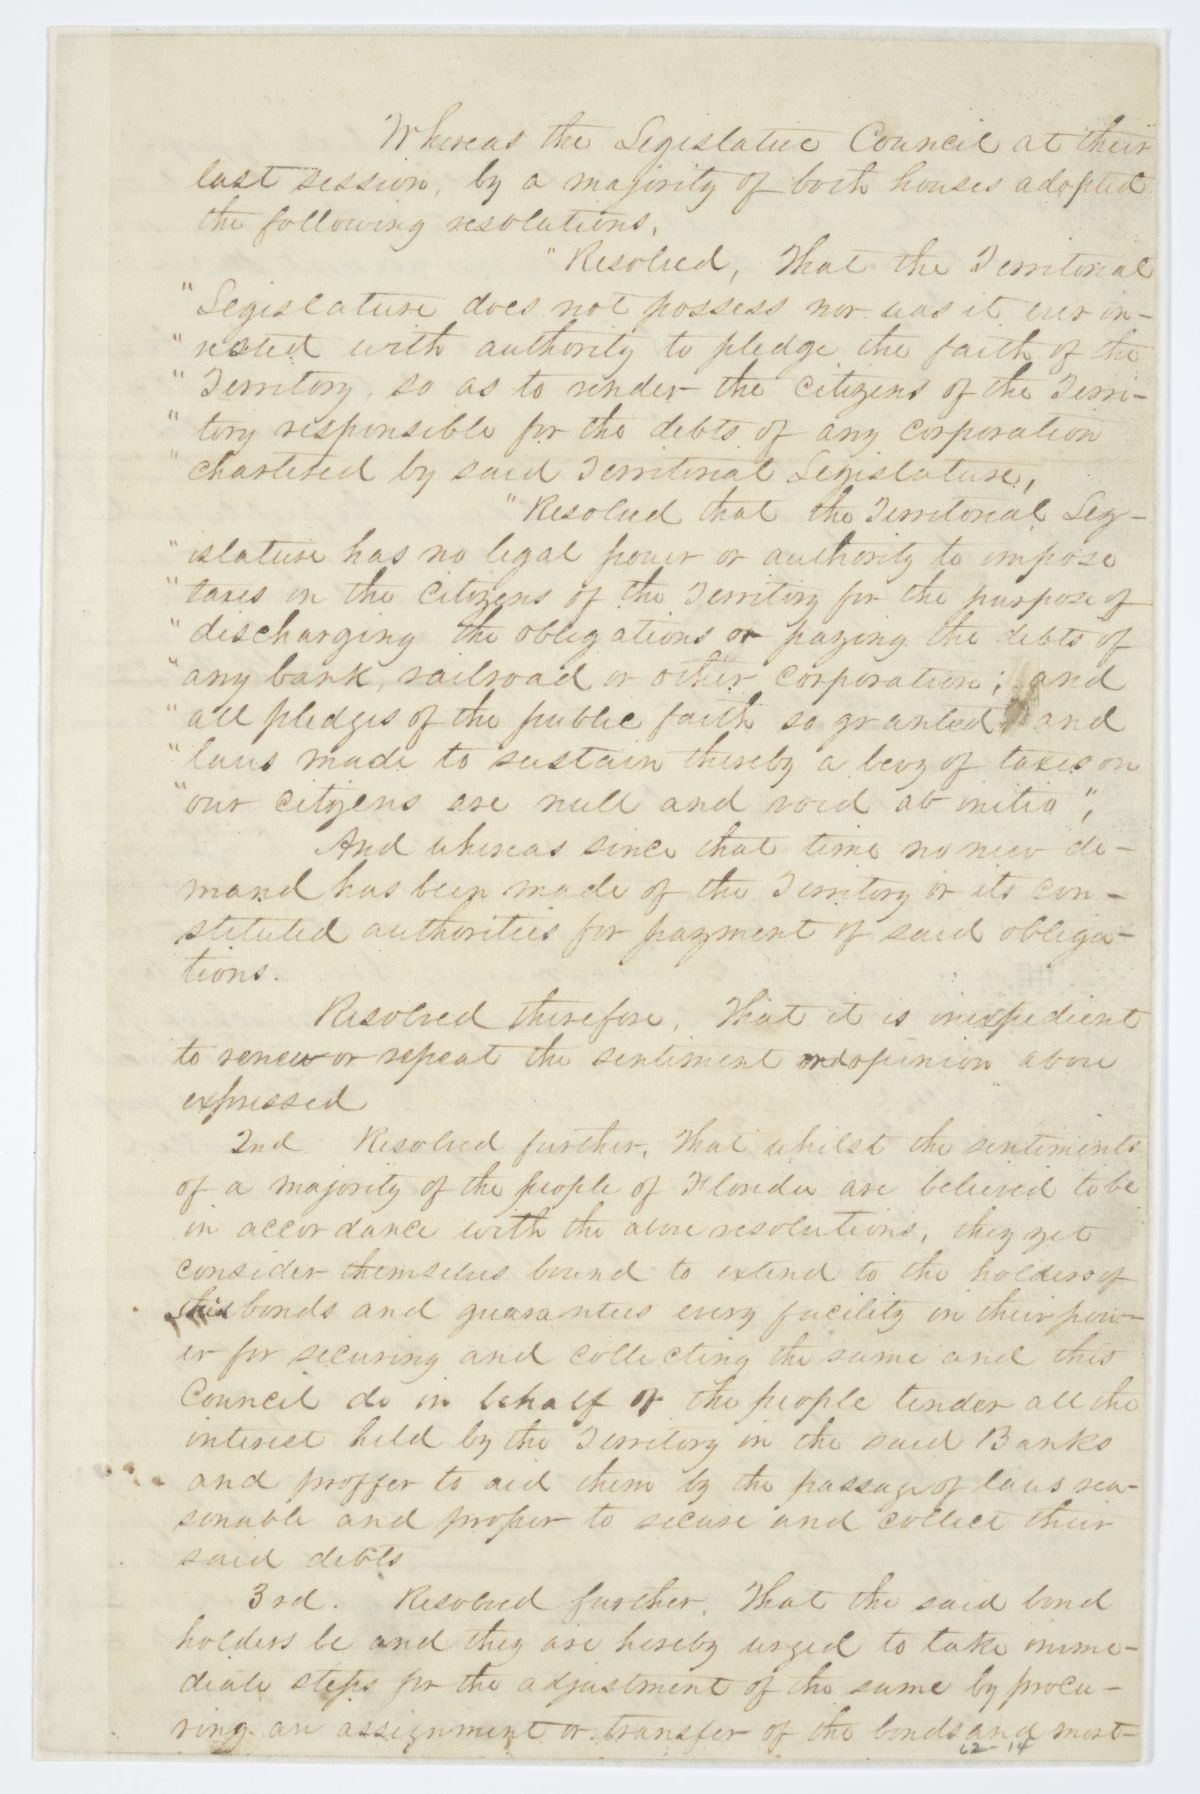 Whereas the Legislative Council at their
last session, by a majority of both houses adopted
the following resolutions,
"Resolved, That the Territorial
"Legislature does not possess nor was it ever in-
"vested with authority to pledge the faith of the
"Territory, so as to render the citizens of the Terri-
"tory responsible for the debts of any corporation
"chartered by said Territorial Legislature,
"Resolved that the Territorial Leg-
"islature has no legal power or authority to impose
"taxes on the citizens of the Territory for the purpose of
"discharging the obligations or paying the debts of
"any bank, railroad or other corporation; and
"all pledges of the public faith so granted and
"laws made to sustain thereby a levy of taxes on
"our citizens are null and void ab initio",
And whereas since that time no new de-
mand has been made of the Territory or its con-
stituted authorities for payment of said obliga-
tions.
Resolved therefore, That it is inexpedient
to renew or repeat the sentiment and opinion above
expressed
2nd Resolved further, That whilst the sentiments
of a majority of the people of Florida are believed to be
in accordance with the above resolutions, they yet
consider themselves bound to extend to the holders of
this bonds and guarantees every facility in their pow-
er for securing and collecting the same and this
Council do in behalf of the people tender all the
interest held by the Territory in the said Banks
and proffer to aid them by the passage of laws rea-
sonable and proper to secure and collect their
said debts
3rd. Resolved further, That the said bond
holders be and they are hereby urged to take imme-
diate steps for the adjustment of the same by procu-
ring an assignment or transfer of the bonds and mort-
62-14